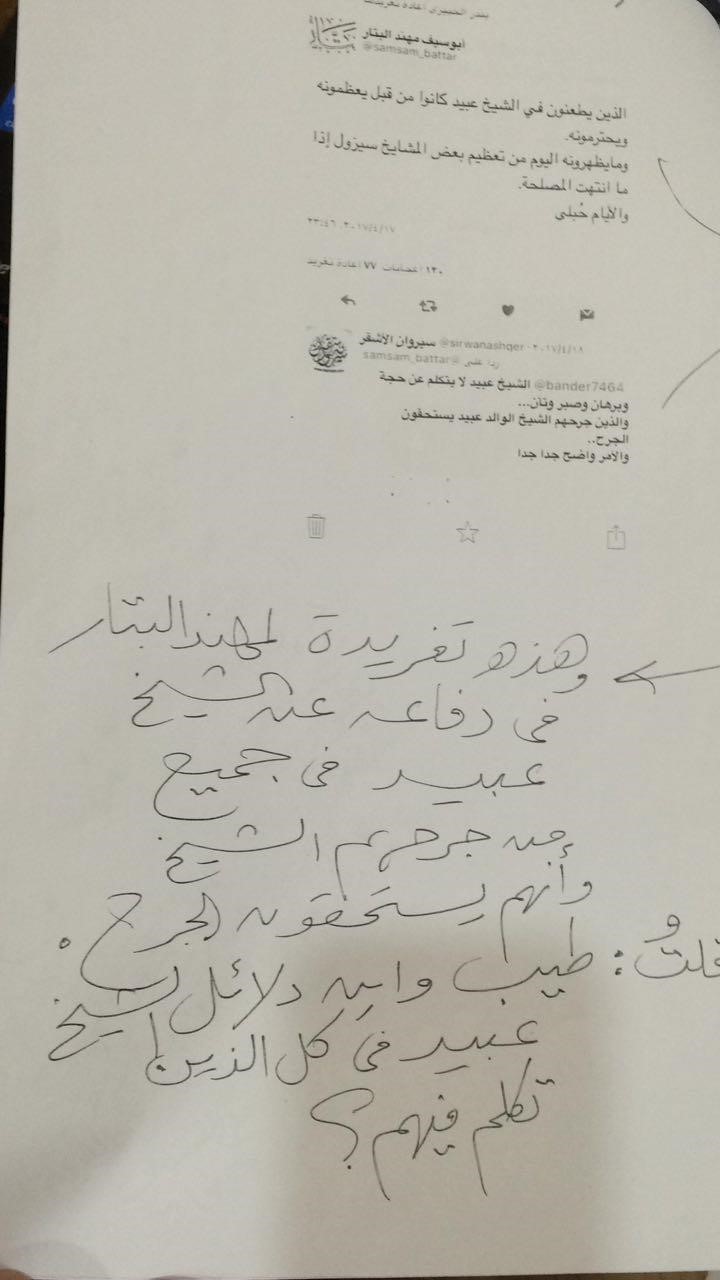 بندر الخيبري أعاد تغريدك
أبوسيف مهند البتار
@samsam_battar
الذين يطعنون في الشيخ عبيد كانوا من قبل يعظمونه
ويحترمونه.
ومايظهرونه اليوم من تعظيم بعض المشايخ سيزول إذا
ما انتهت المصلحة.
والأيام حُبلى
٢٠١٧/٤/١٧، ٢٣:٤٦
١٣٠ اعجابات ٧٧ اعادة تغريد
سيروان الأشقر @sirwanashqer · ٢٠١٧/٤/١٨
ردا على @samsam_battar
@bander7464 الشيخ عبيد لا يتكلم عن حجة
وبرهان وصبر وتان...
والذين جرحهم الشيخ الوالد عبيد يستحقون
الجرح..
والأمر واضح جدا جدا
وهذه تغريدة لمهند البتار
في دفاعه عن الشيخ
عبيد في جميع
من جرحهم الشيخ
وأنهم يستحقون الجرح.
قلتُ: طيب واين دلائل الشيخ
عبيد في كل الذين
تكلم فيهم؟